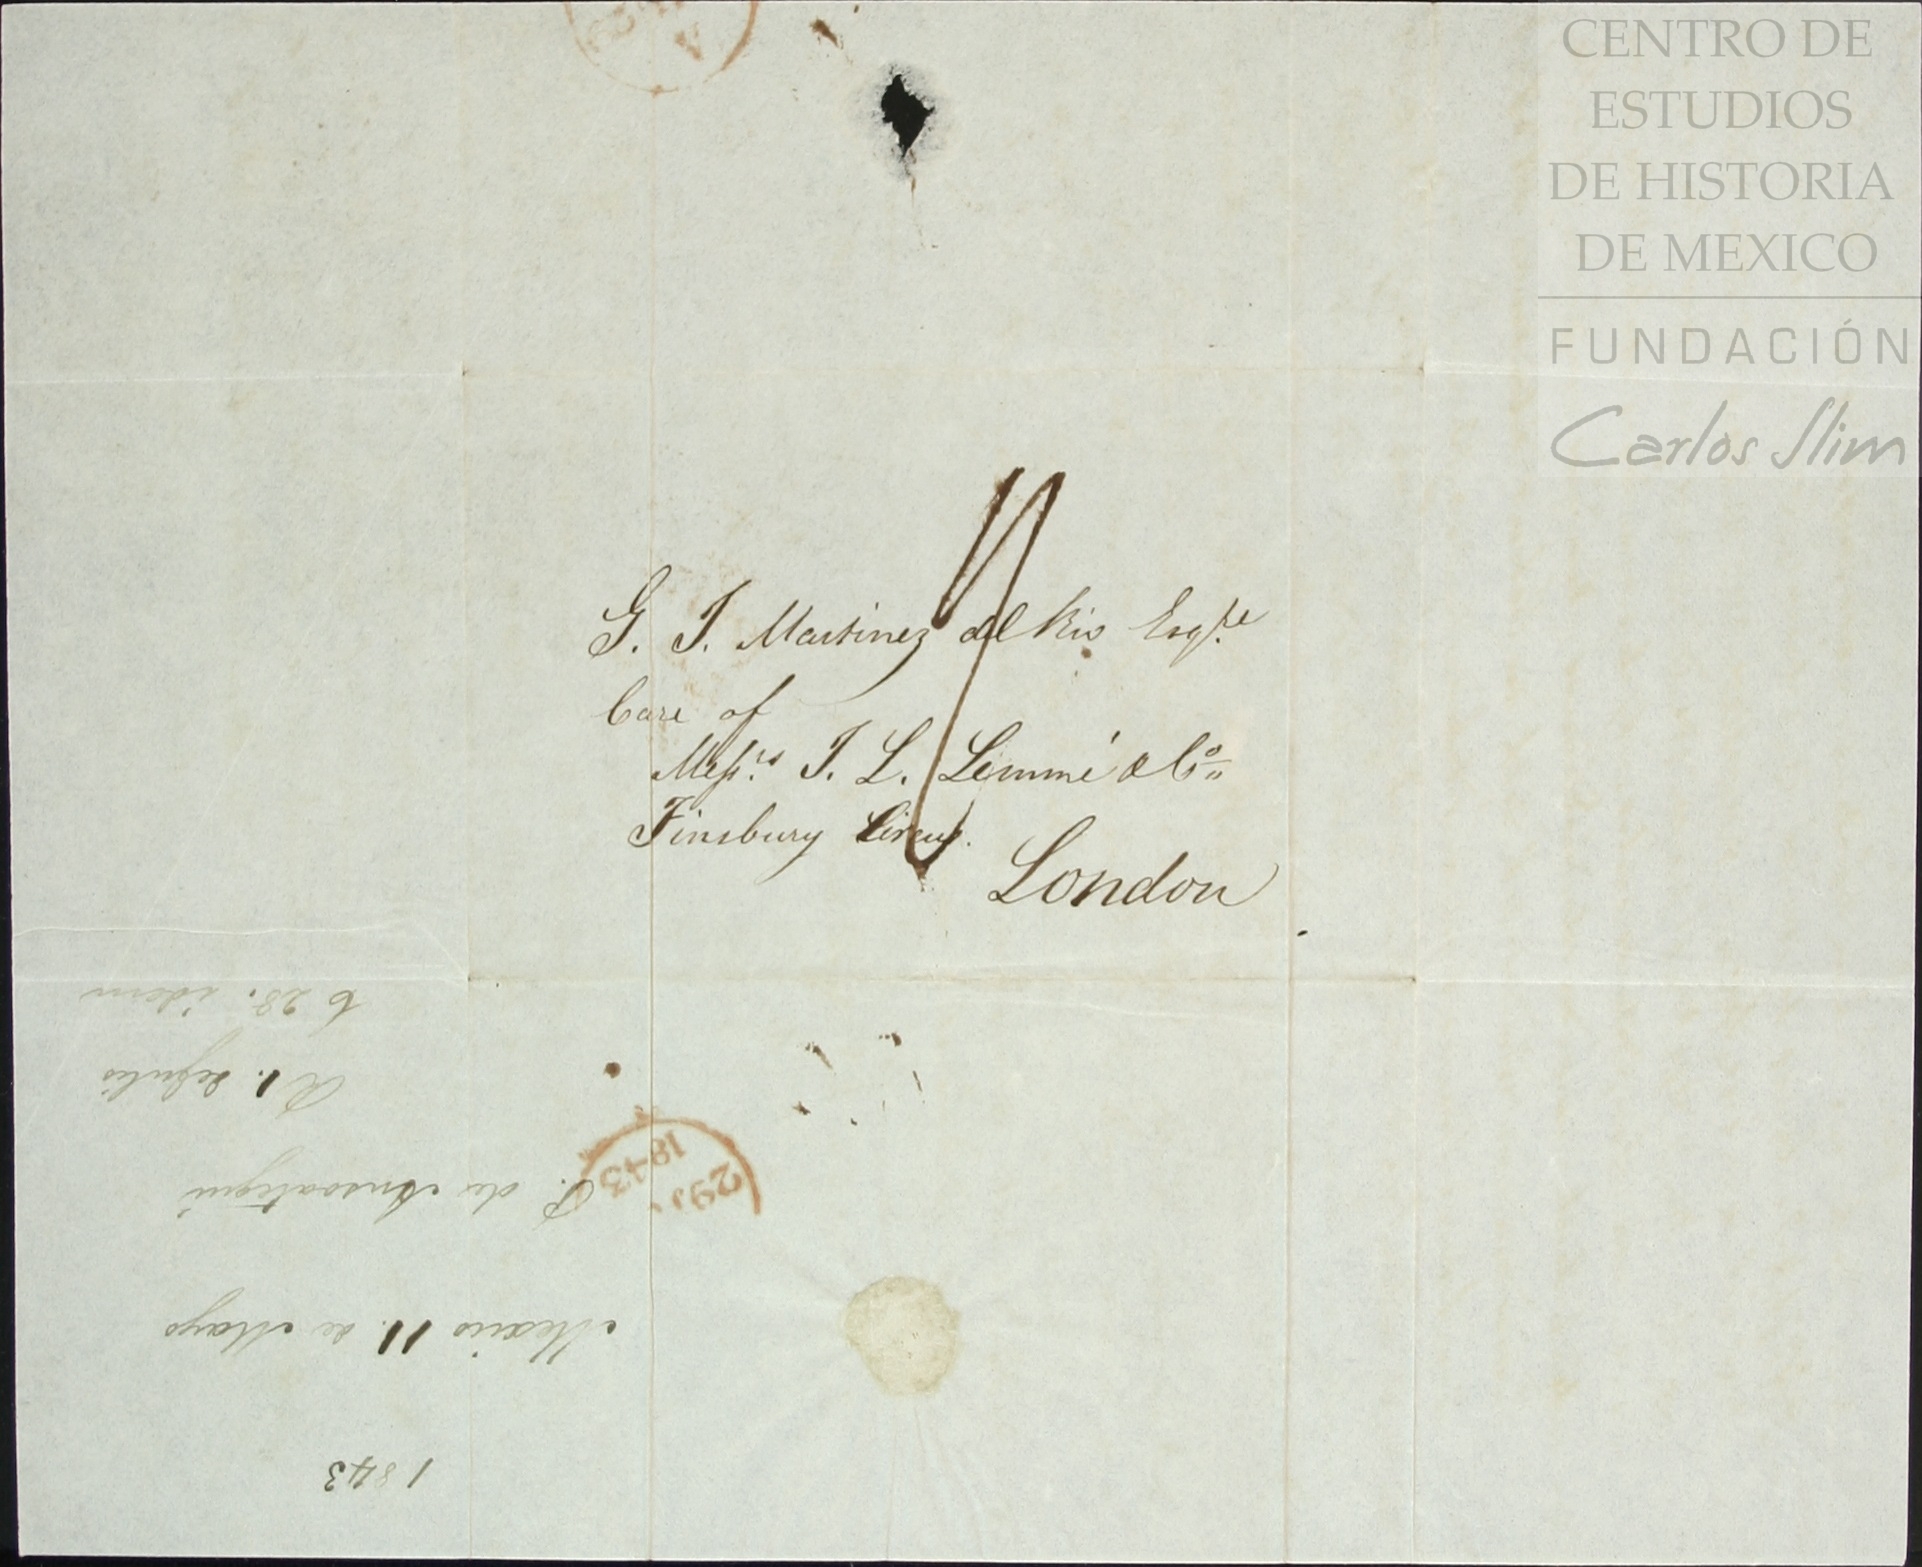 CENTRO DE
ESTUDIOS
DE HISTORIA
DE MEXICO
FUNDACIÓN
Carlos Slim
G. J. Martinez del Rio Esqre
Care of
Messrs J. L. Lemmé & Co
Finsbury Circus.
London
1843
Mexico 11. de Mayo
P. de Ansoategui
R 1. de Julio
C 28. idem
29
1843
A